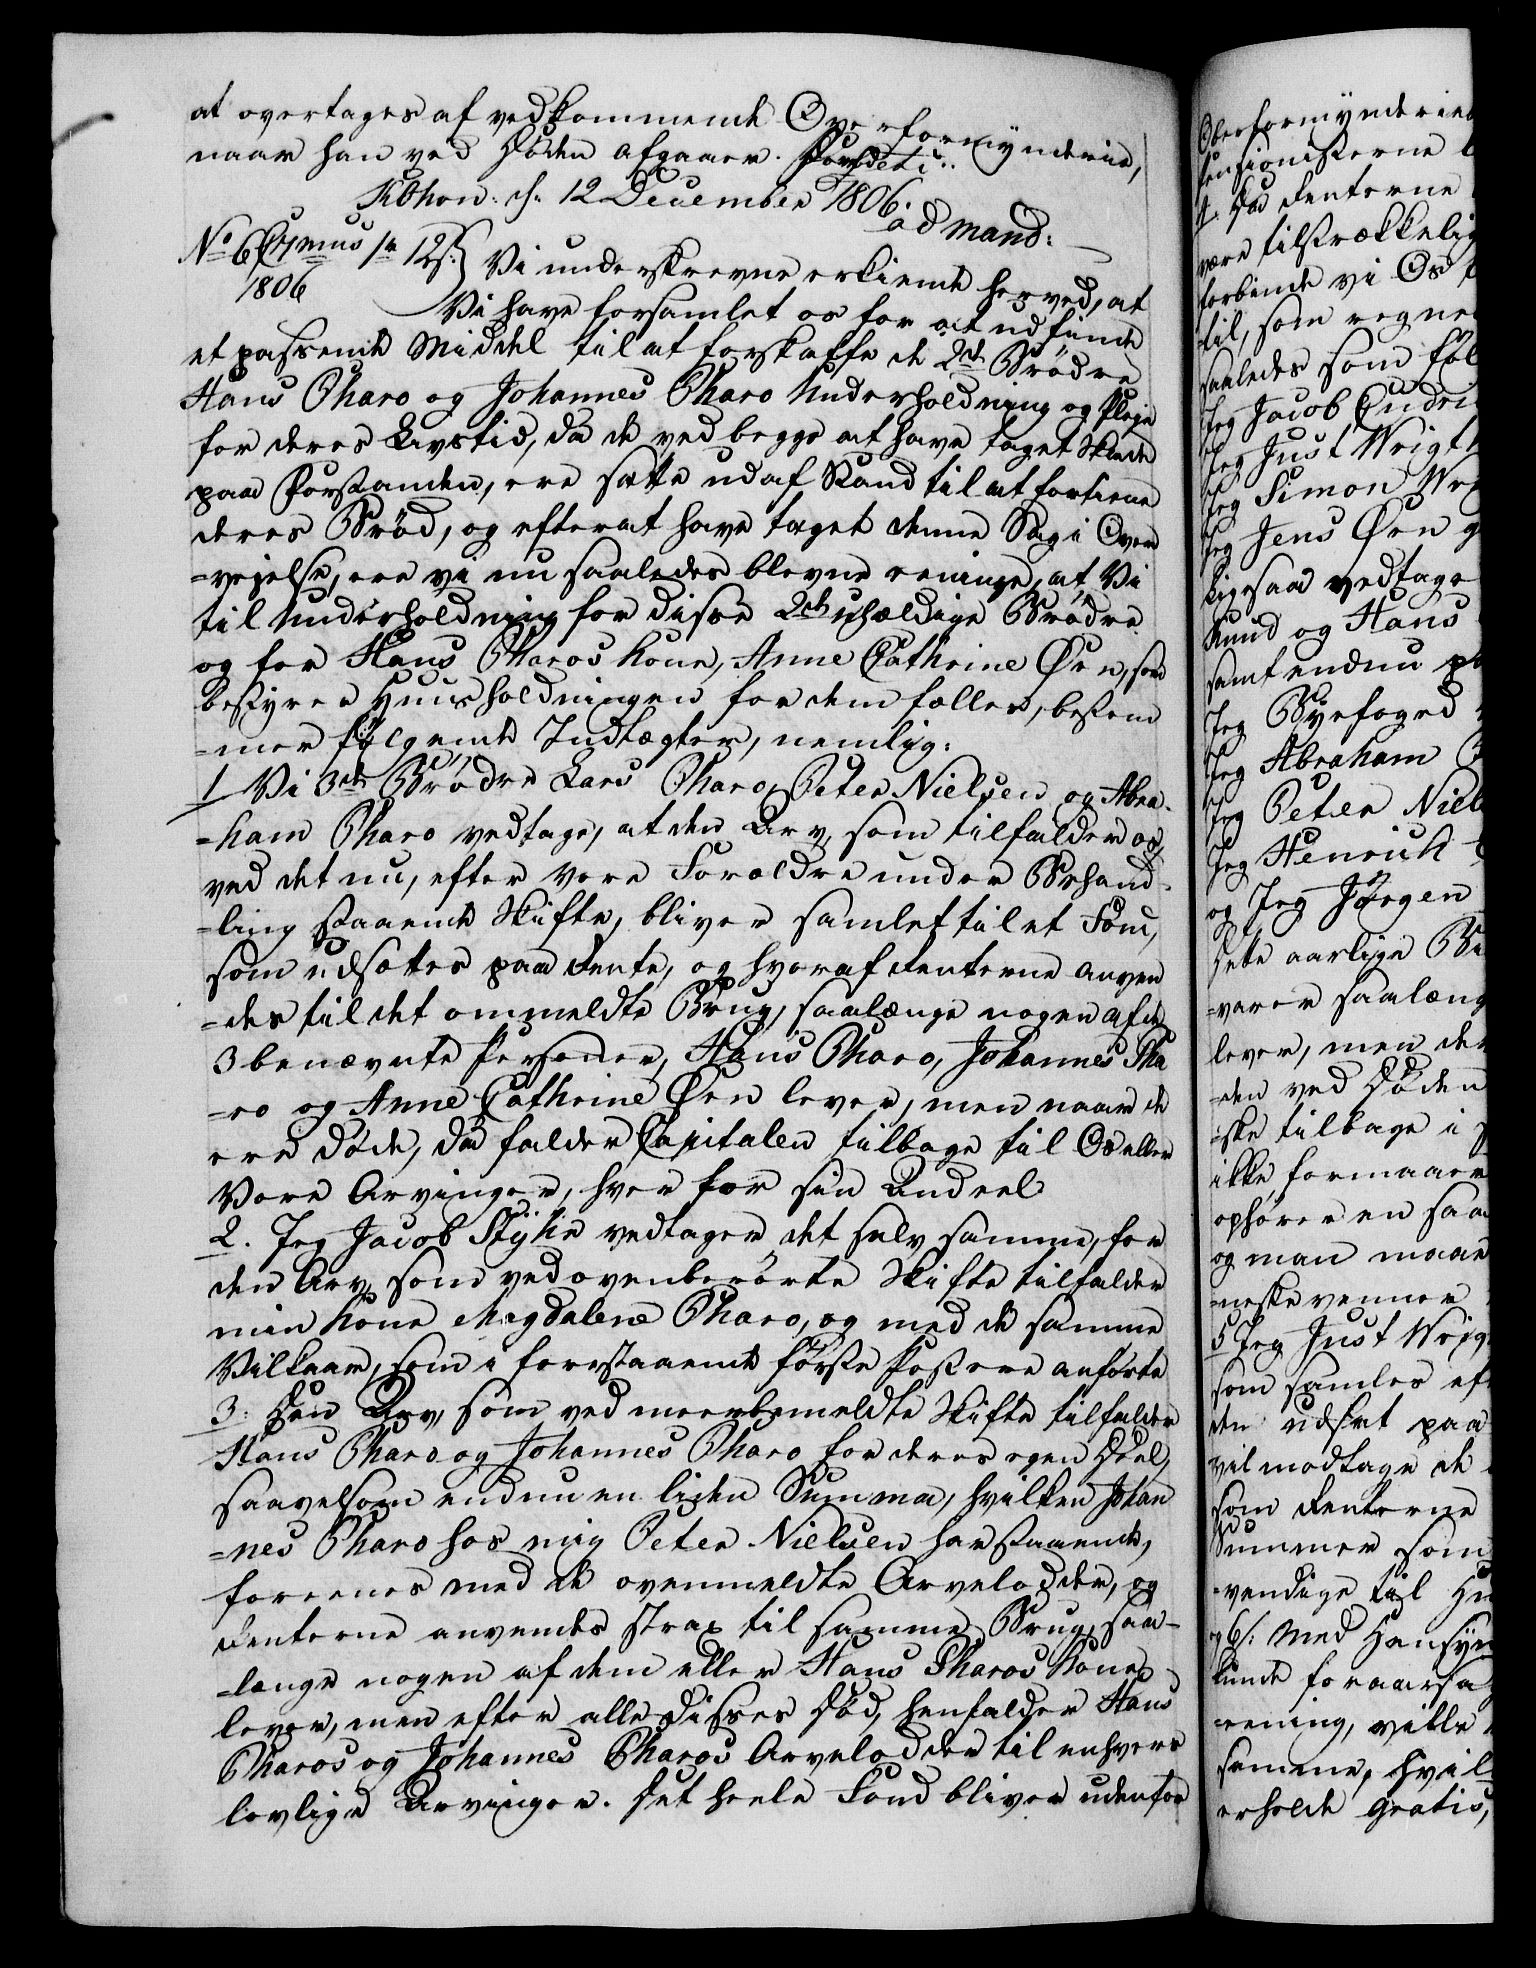 at overtages af vedkommende Overformynderie,
naar han ved Döden afgaaer.
Kbhvn: d. 12 December 1806.
ad mand:
No 6 12 s.
1806
Vi underskrevne erkiende herved, at
Vi have forsamlet os for at udfinde
et passende Middel til at forskaffe de 2de Brödre
Hans Pharo og Johannes Pharo Underholdning og Pleje
for deres Livstid, da de ved begge at have taget Skade
paa Forstanden, ere satte udaf Stand til at fortiene
deres Bröd, og efterat have taget denne Sag i Over
=vejelse, ere vi nu saaledes blevne eenige, at Vi
til Underholdning for disse 2de uhældige Brödre
og for Hans Pharos Kone, Anne Cathrine Örn, som
bestyrer Huusholdningen for dem fælles, bestem
=mer fölgende Indtægter, nemlig:
1 Vi 3de Brödre Lars Pharo, Peter Nielsen og Abra-
=ham Pharo vedtage, at den Arv, som tilfalder os,
ved det nu, efter vore Forældre under Behand-
=ling staaende Skifte, bliver samlet til et Fond,
som udsættes paa Rente, og hvoraf Renterne anven
=des til det ommeldte Brug, saalænge nogen af de
3 benævnte Personer, Hans Pharo, Johannes Pha
=ro og Anne Cathrine Örn lever, men naar de
ere döde, da falder Capitalen tilbage til Os eller
Vore Arvinger, hver for sin Andeel
2. Jeg Jacob Stÿhr vedtager det selv samme, for
den Arv, som ved ovenberörte Skifte tilfalder
min Kone Magdalene Pharo, og med de samme
Vilkaar, som i forestaaende förste Post ere anförte
3. Den Arv, som ved meerbemeldte Skifte tilfalder
Hans Pharo og Johannes Pharo for deres egen Deel,
saavelsom endnu en liden Summa, hvilken Johan
=nes Pharo hos mig Peter Nielsen har staaende,
foreenes med de ovenmeldte Arvelodder, og
Renterne anvendes strax til samme Brug, saa-
=længe nogen af dem eller Hans Pharos Kone
lever, men efter alle disses Död, henfalder Hans
Pharos og Johannes Pharos Arvelodder til enhvers
lovlige Arvinger. Det heele Fond bliver udenfor
Overformynderiet
Renterne
være tilstrækkelig
forbinde vi Os
til, som regne
saaledes som föl
Jeg Jacob
Jeg Just Wrigt
Jeg Simon
Jeg Jens Örn
ligesaa vedtage
Knud og Hans
samt endnu
Jeg Byefoged
Jeg Abraham
Jeg Peter Niel
Jeg Henrich
og Jeg Jörgen
Dette aarlige
=varer saalæng
lever, men der
=den ved Döden
=ske tilbage i
ikke formaaer
ophörer en saa
og man maae
=neske venner
5 Jeg Just Wrig
som samles eft
den udsat paa
vil modtage de
som Renterne
Summer som
=vendige til
og 6/: Med Hensyn
kunde foraarsa
=rening, ville
samme, hvil
erholde Gratis,